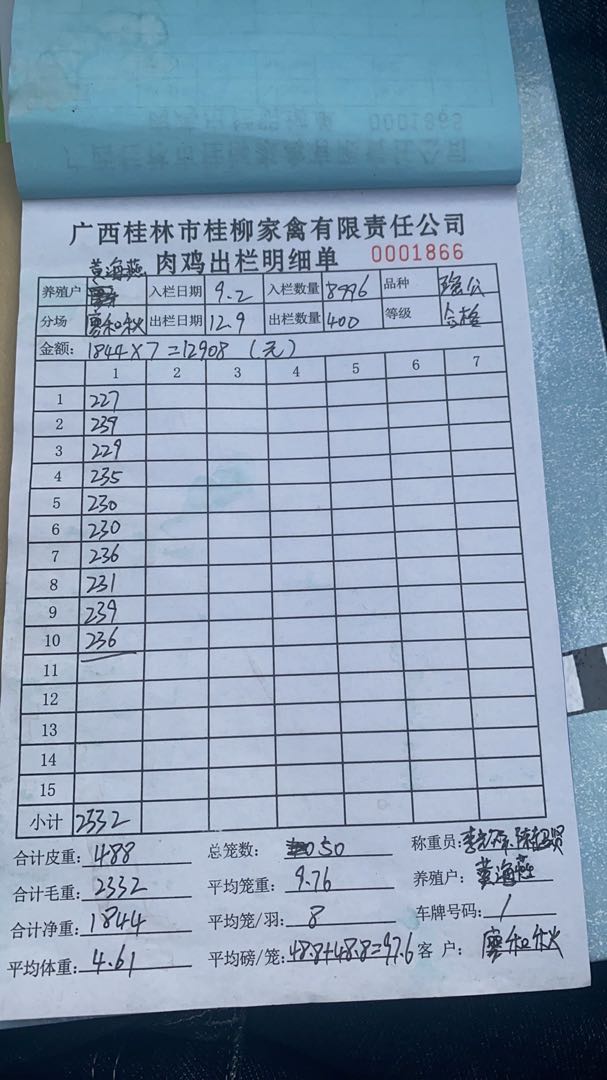 广西桂林市桂柳家禽有限责任公司
肉鸡出栏明细单 0001866
养殖户 黄海燕 入栏日期 9.2 入栏数量 8996 品种 瑶公
分场 廖和秋 出栏日期 12.9 出栏数量 400 等级 合格
金额: 1844×7=12908 (元)
1 2 3 4 5 6 7
1 227
2 239
3 229
4 235
5 230
6 230
7 236
8 231
9 239
10 236
11
12
13
14
15
小计 2332
合计皮重: 488 总笼数: 50 称重员:
合计毛重: 2332 平均笼重: 9.76 养殖户: 黄海燕
合计净重: 1844 平均笼/羽: 8 车牌号码: /
平均体重: 4.61 平均磅/笼: 48.8+48.8=97.6 客 户: 廖和秋